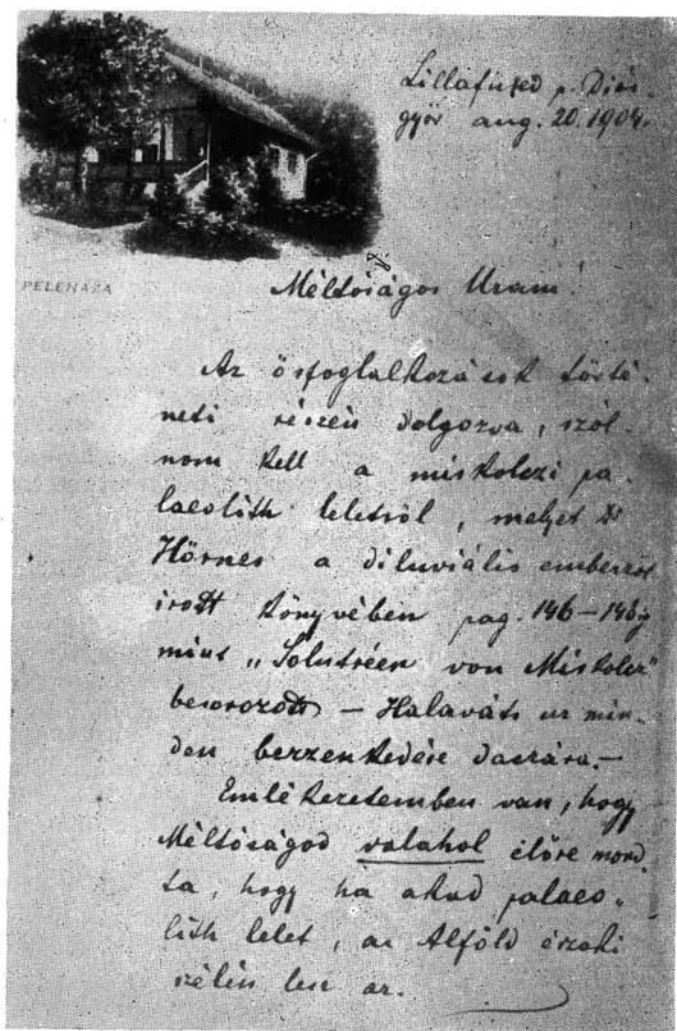 Lillafüred p. Diós-
győr aug. 20. 1904.
PELEHÁZA
Méltóságos Uram!
Az ősfoglalkozások törté-
neti részén dolgozva, szól-
nom kell a miskolczi pa-
laeolith leletről, melyet Dr
Hörnes a diluviális emberről
irott könyvében pag. 146–148ig
mint „Solutréen von Miskolcz"
besorozott – Halaváts ur min-
den berzenkedése daczára.–
Emlékezetemben van, hogy
Méltóságod valahol előre mond-
ta, hogy ha akad palaeo-
lith lelet, az Alföld északi
szélén lesz az.